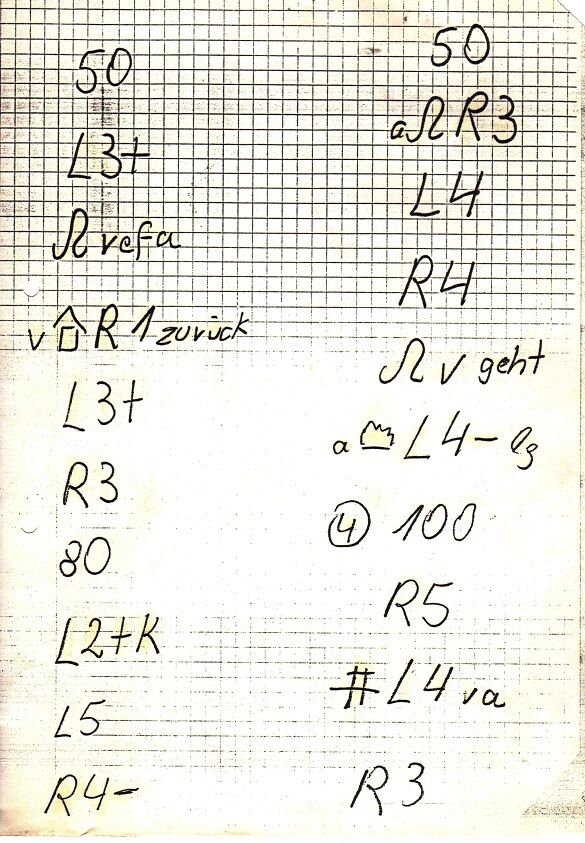 50
L3+
Ω vefa
v R 1 zurück
L3+
R3
80
L2+K
L5
R4-
50
aΩ R3
L4
R4
Ω v geht
a L4- lg
4 100
R5
# L4 va
R3